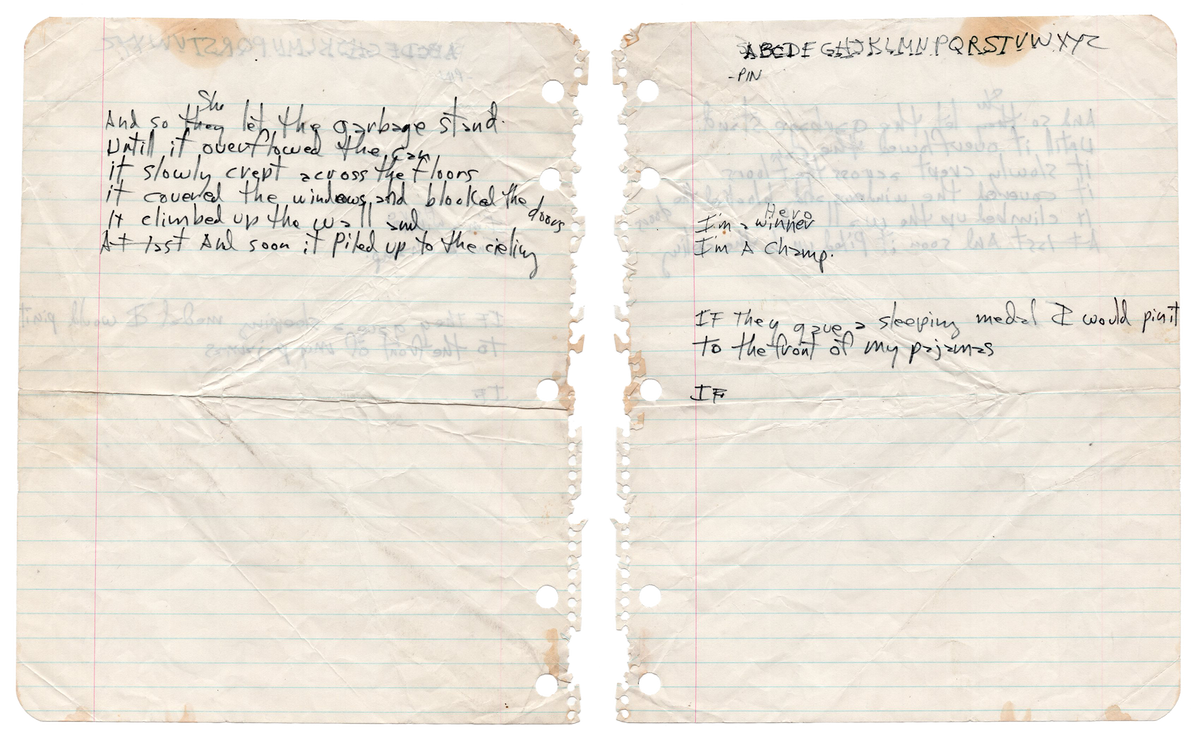 She
And so they let the garbage stand.
Until it overflowed the can
it slowly crept across the floors
it covered the windows and blocked the doors
It climbed up the wall and
At last And soon it Piled up to the cieling
ABCDEFGHIJKLMNOPQRSTUVWXYZ
-PIN
Hero
I'm a winner
I'm A Champ.
IF They gave a sleeping medal I would pin it
to the front of my pajamas
IF